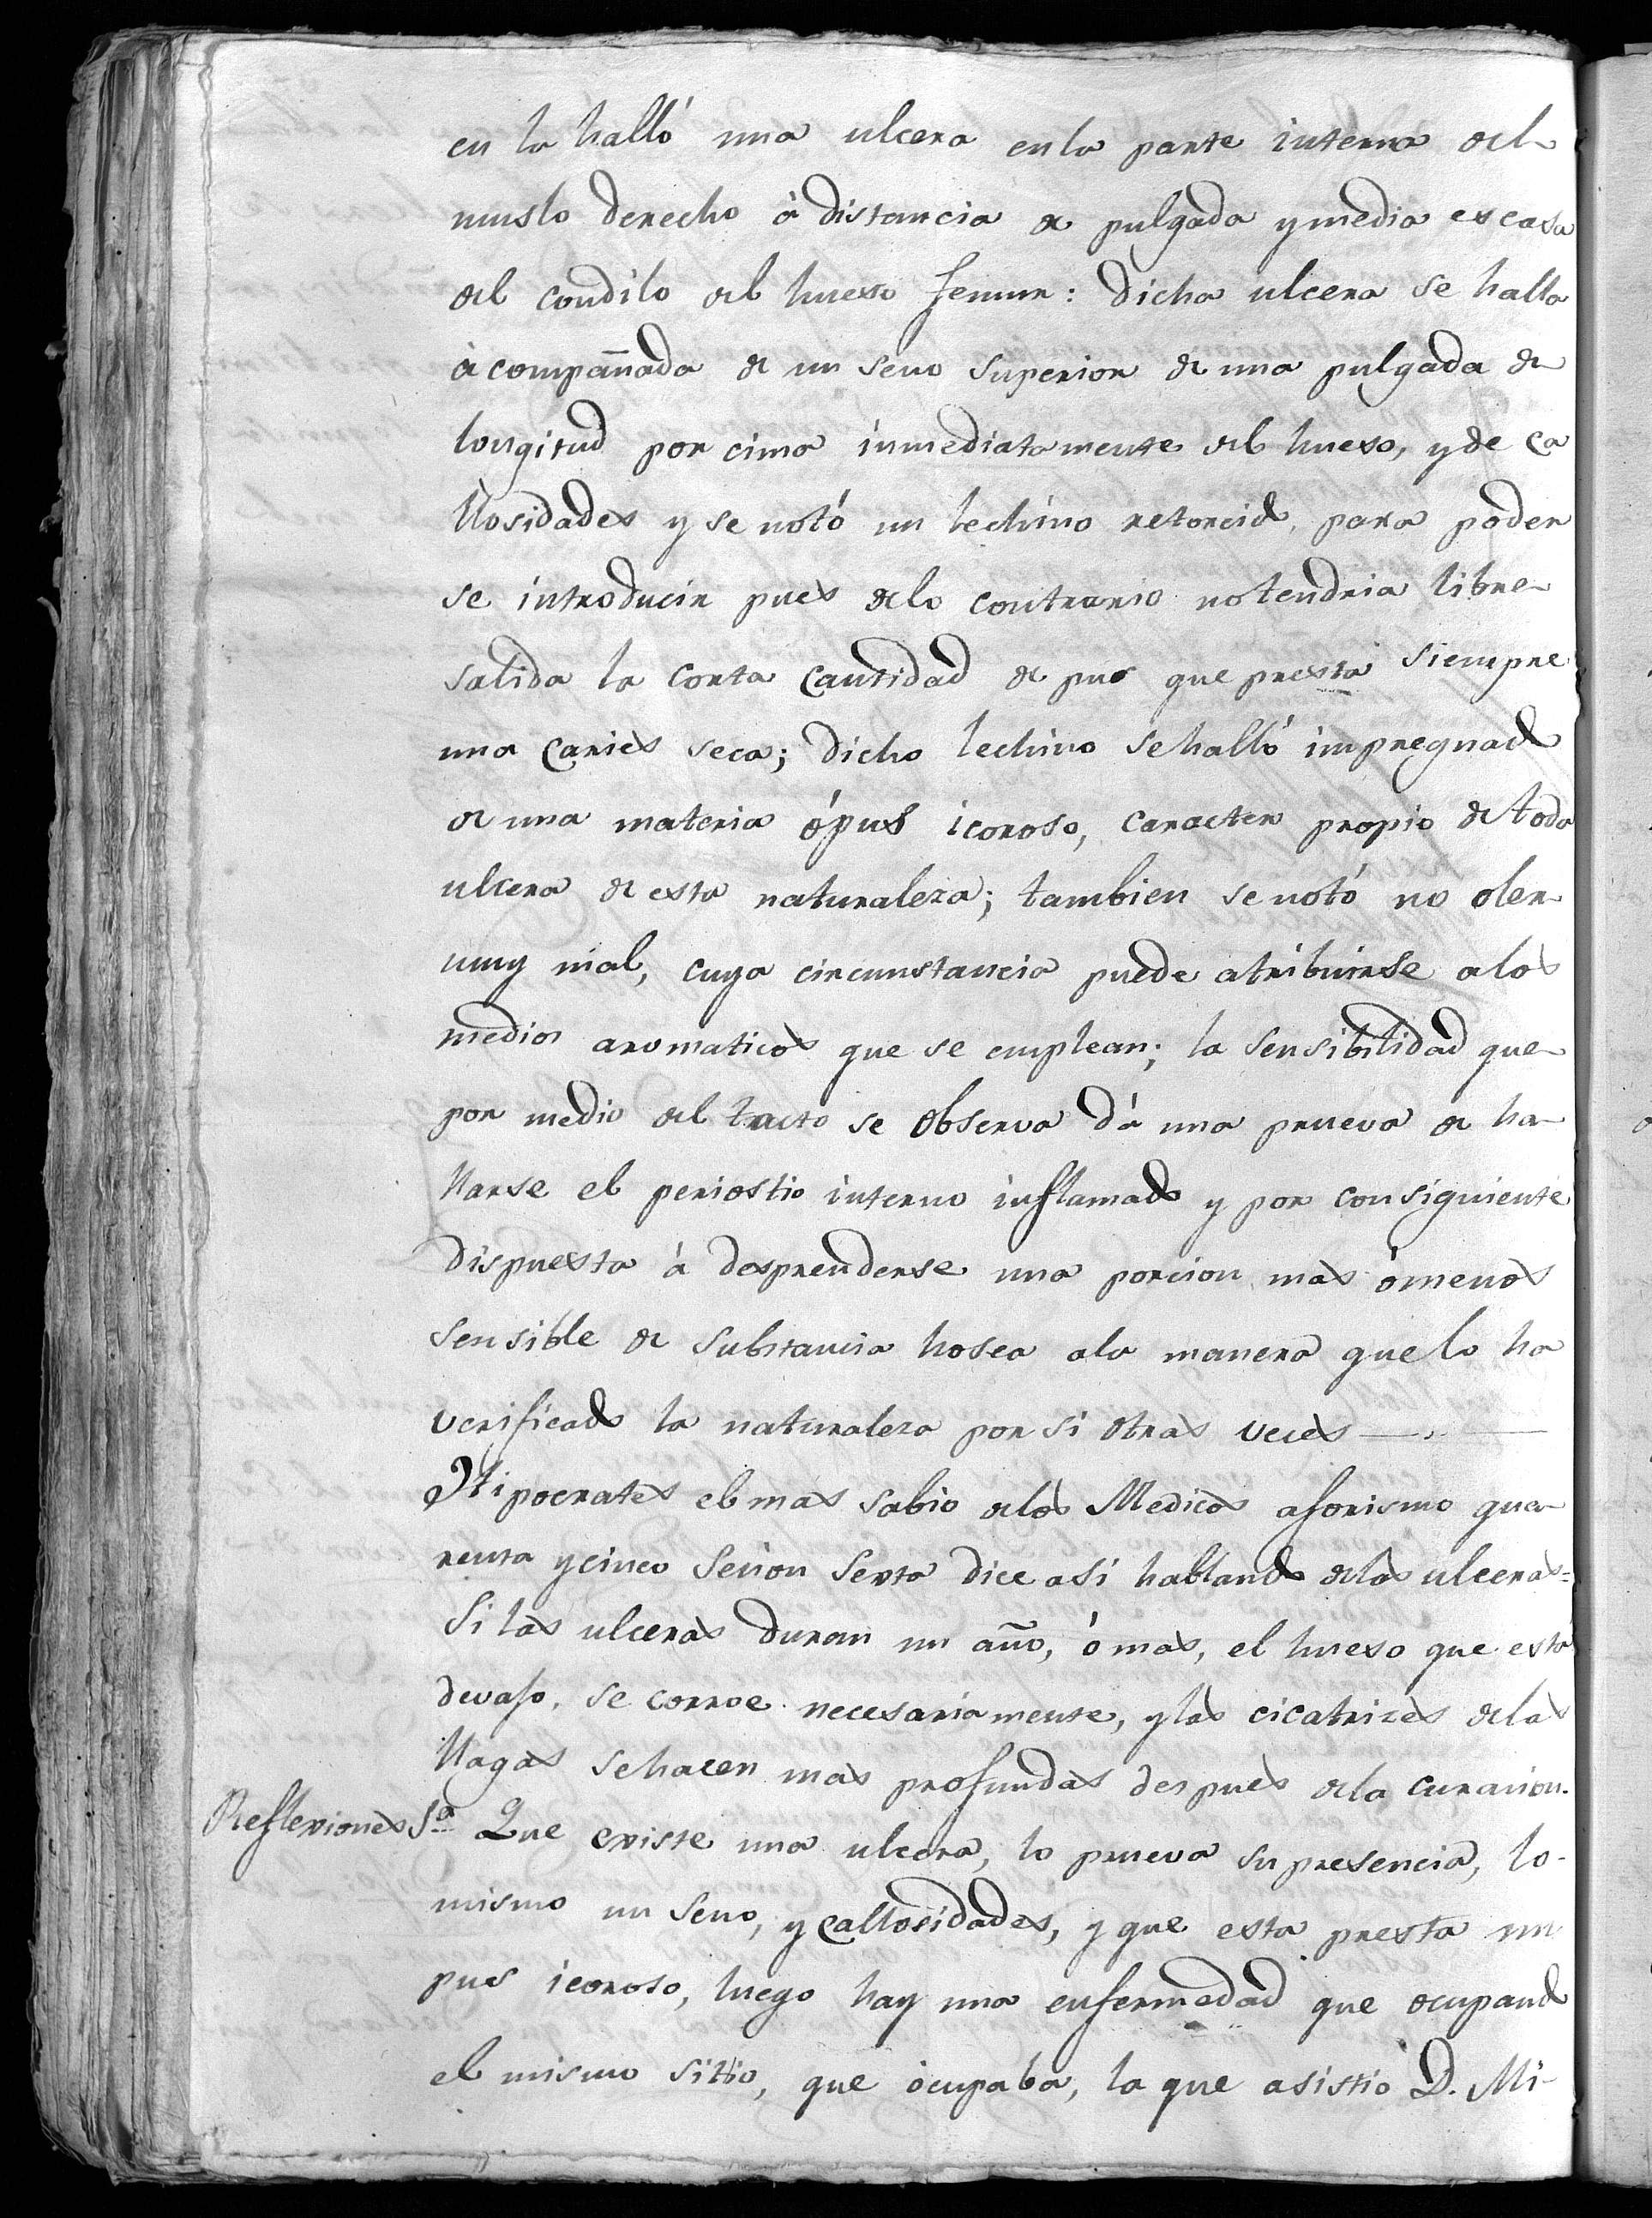 en la halló una ulcera enla parte interna del
muslo derecho á distancia de pulgada y media escasa
del condilo del hueso femur: dicha ulcera se halla
acompañada de un seno superior de una pulgada de
longitud por cima inmediatamente del hueso, y de ca
llosidades y se notó un lechino retorcido, para poder
se introducir pues delo contrario notendria libre
salida la corta cantidad de pus que presta siempre
una caries seca; dicho lechino sehalló impregnado
de una materia ópus icoroso, caracter propio de toda
ulcera de esta naturaleza; tambien se notó no oler
muy mal, cuya circunstancia puede atribuirse alos
medios aromaticos que se emplean; la sensibilidad que
por medio del tacto se observa dá una prueva de ha
llarse el periostio interno inflamado y por consiguiente
dispuesta á desprenderse una porcion mas ómenos
sensible de substancia hosea ala manera que lo ha
verificado la naturaleza por si otras veces
Hipocrates el mas sabio delos Medicos aforismo qua
renta y cinco Seccion Sexta dice asi hablando delas ulceras=
Si las ulceras duran un año, ó mas, el hueso que está
devajo, se corroe necesariamente, y las cicatrices delas
llagas sehacen mas profundas despues dela curacion.
Reflexiones 1ª Que existe una ulcera, lo prueva su presencia, lo
mismo un seno, y callosidades, y que esta presta un
pus icoroso, luego hay una enfermedad que ocupando
el mismo sitio, que ocupaba, la que asistio D. Mi-